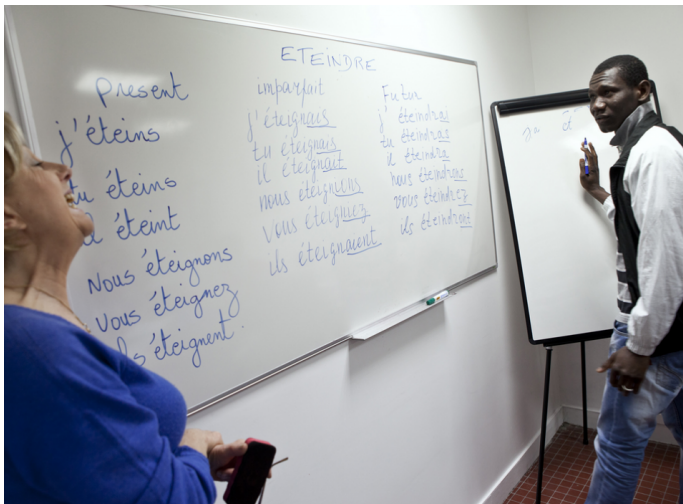 ETEINDRE
Present
j'éteins
tu éteins
il éteint
Nous éteignons
Vous éteignez
ils éteignent.
imparfait
j'éteignais
tu éteignais
il éteignait
nous éteignions
vous éteigniez
ils éteignaient
Futur
j'éteindrai
tu éteindras
il éteindra
nous éteindrons
vous éteindrez
ils éteindront